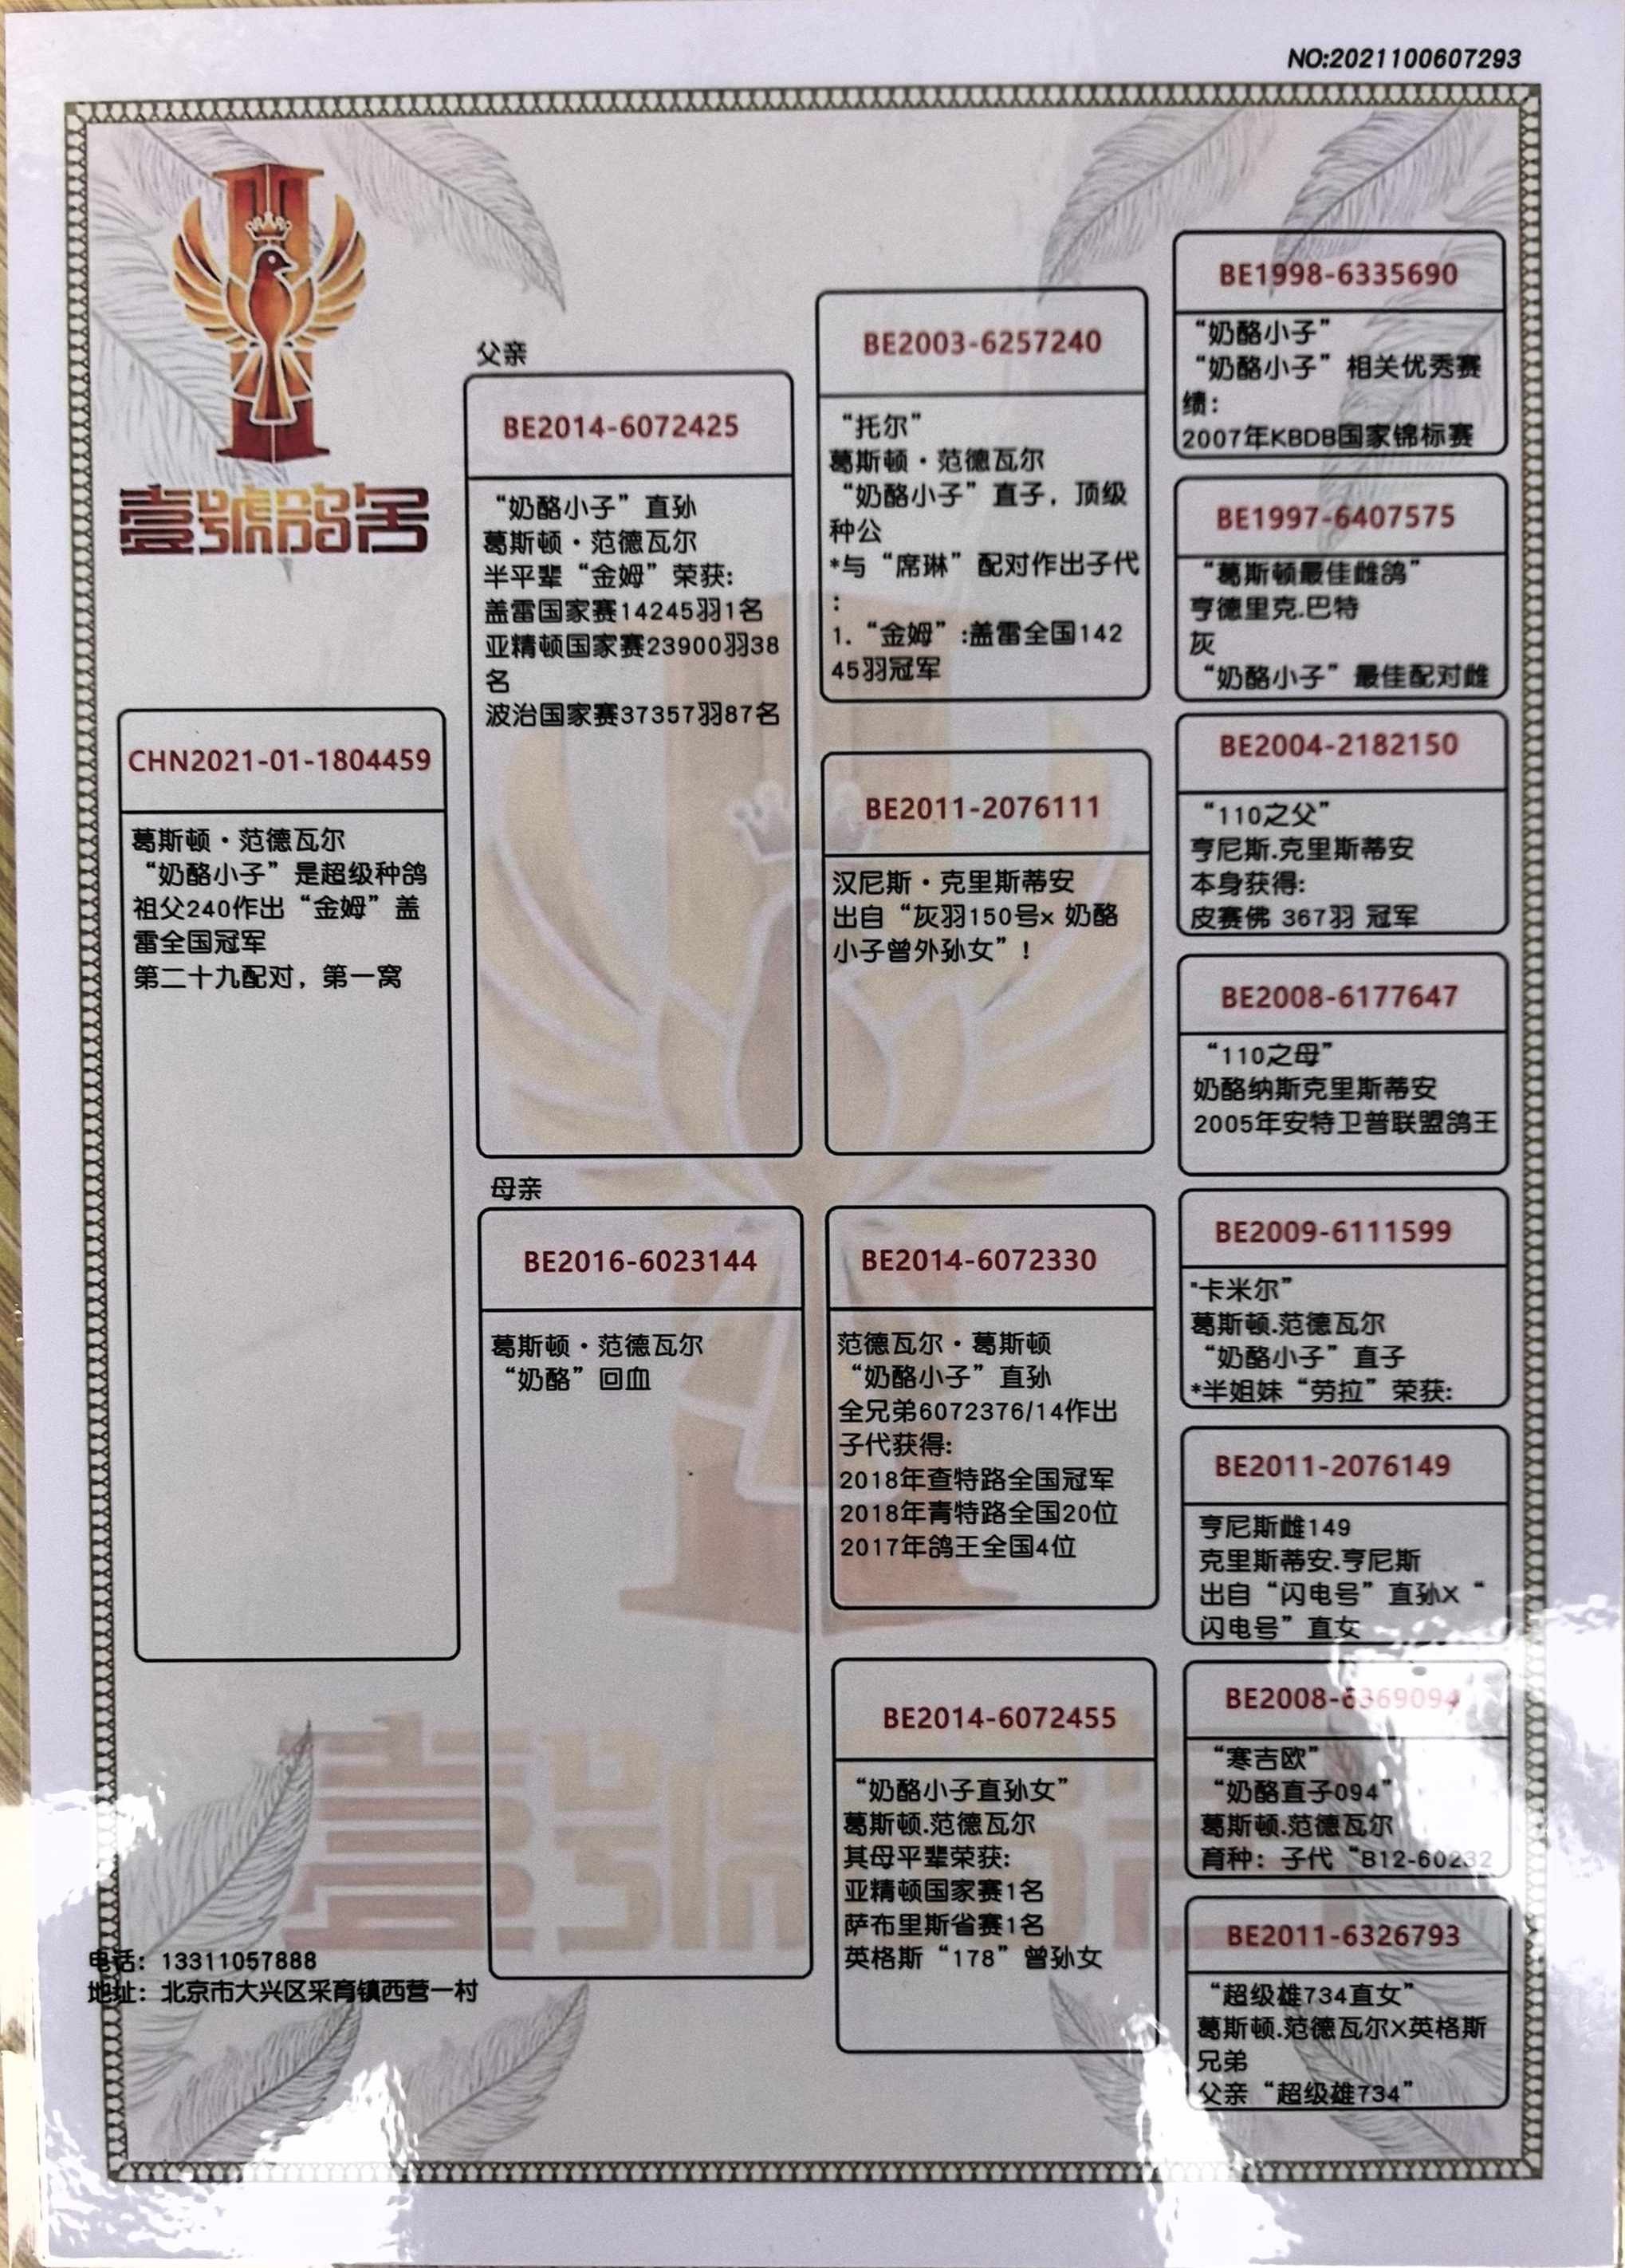 NO:2021100607293
壹號鸽舍
CHN2021-01-1804459
葛斯顿·范德瓦尔
“奶酪小子”是超级种鸽
祖父240作出“金姆”盖
雷全国冠军
第二十九配对，第一窝
父亲
BE2014-6072425
“奶酪小子”直孙
葛斯顿·范德瓦尔
半平辈“金姆”荣获:
盖雷国家赛14245羽1名
亚精顿国家赛23900羽38
名
波治国家赛37357羽87名
母亲
BE2016-6023144
葛斯顿·范德瓦尔
“奶酪”回血
BE2003-6257240
“托尔”
葛斯顿·范德瓦尔
“奶酪小子”直子，顶级
种公
*与“席琳”配对作出子代
:
1.“金姆”:盖雷全国142
45羽冠军
BE2011-2076111
汉尼斯·克里斯蒂安
出自“灰羽150号x 奶酪
小子曾外孙女”！
BE2014-6072330
范德瓦尔·葛斯顿
“奶酪小子”直孙
全兄弟6072376/14作出
子代获得:
2018年查特路全国冠军
2018年青特路全国20位
2017年鸽王全国4位
BE2014-6072455
“奶酪小子直孙女”
葛斯顿.范德瓦尔
其母平辈荣获:
亚精顿国家赛1名
萨布里斯省赛1名
英格斯“178”曾孙女
BE1998-6335690
“奶酪小子”
“奶酪小子”相关优秀赛
绩:
2007年KBDB国家锦标赛
BE1997-6407575
“葛斯顿最佳雌鸽”
亨德里克.巴特
灰
“奶酪小子”最佳配对雌
BE2004-2182150
“110之父”
亨尼斯.克里斯蒂安
本身获得:
皮赛佛 367羽 冠军
BE2008-6177647
“110之母”
奶酪纳斯克里斯蒂安
2005年安特卫普联盟鸽王
BE2009-6111599
"卡米尔”
葛斯顿.范德瓦尔
“奶酪小子”直子
*半姐妹“劳拉”荣获:
BE2011-2076149
亨尼斯雌149
克里斯蒂安.亨尼斯
出自“闪电号”直孙X“
闪电号”直女
BE2008-6369094
“寒吉欧”
“奶酪直子094”
葛斯顿.范德瓦尔
育种：子代“B12-60232
BE2011-6326793
“超级雄734直女”
葛斯顿.范德瓦尔X英格斯
兄弟
父亲“超级雄734”
电话：13311057888
地址：北京市大兴区采育镇西营一村